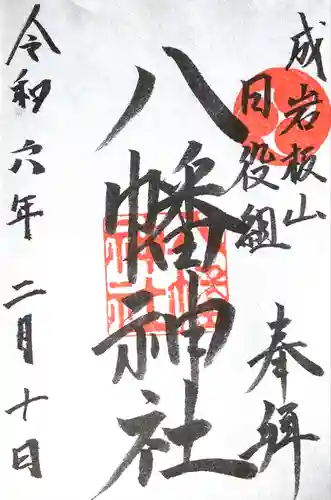 成岩板山
日役組
奉拝
八幡神社
令和六年二月十日